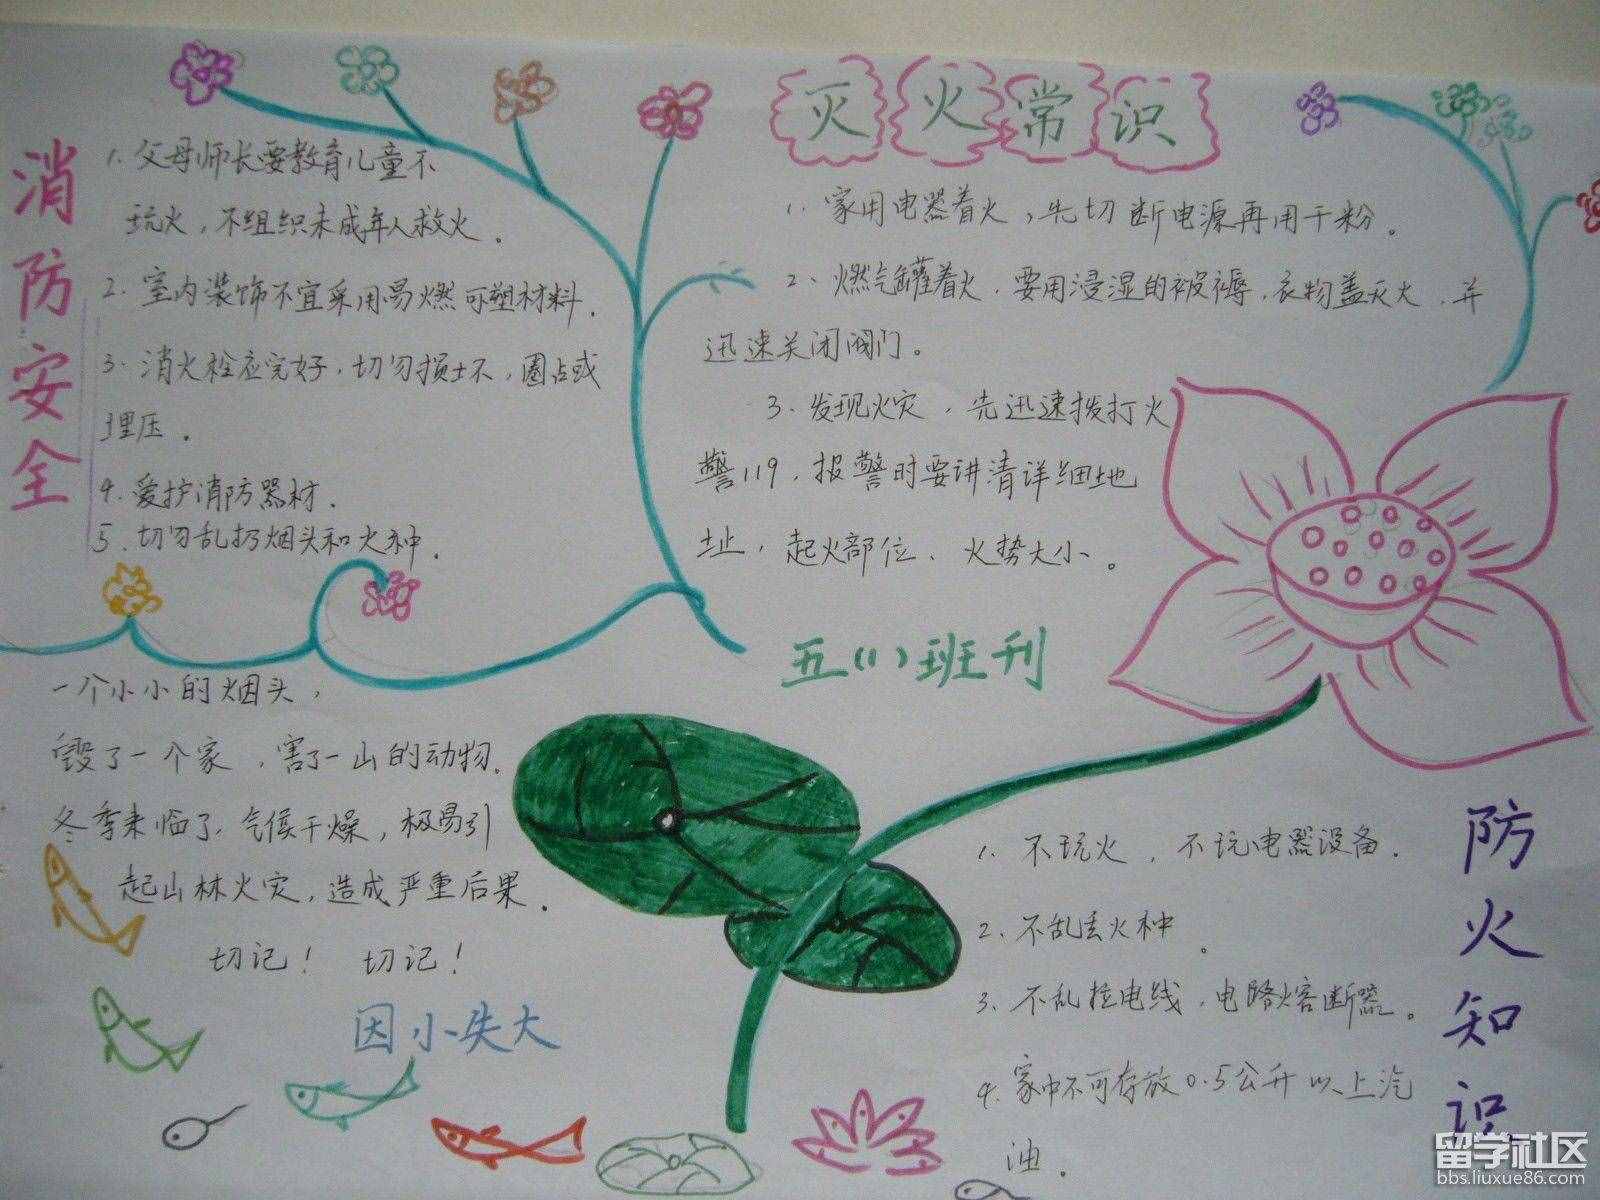 消防安全
1. 父母师长要教育儿童不
玩火，不组织未成年人救火。
2. 室内装饰不宜采用易燃可塑材料.
3. 消火栓应完好，切勿损坏，圈占或
埋压。
4. 爱护消防器材.
5. 切勿乱扔烟头和火种.
灭火常识
1. 家用电器着火，先切断电源再用干粉.
2、燃气罐着火，要用浸湿的被褥，衣物盖灭火，并
迅速关闭阀门。
3、发现火灾，先迅速拨打火
警119，报警时要讲清详细地
址，起火部位、火势大小。
五(1)班刊
一个小小的烟头，
毁了一个家，害了一山的动物.
冬季来临了，气候干燥，极易引
起山林火灾，造成严重后果.
切记！ 切记！
因小失大
防火知识
1. 不玩火，不玩电器设备.
2. 不乱丢火种。
3. 不乱拉电线，电路熔断器。
4. 家中不可存放0.5公升以上汽
油.
留学社区
bbs.liuxue86.com